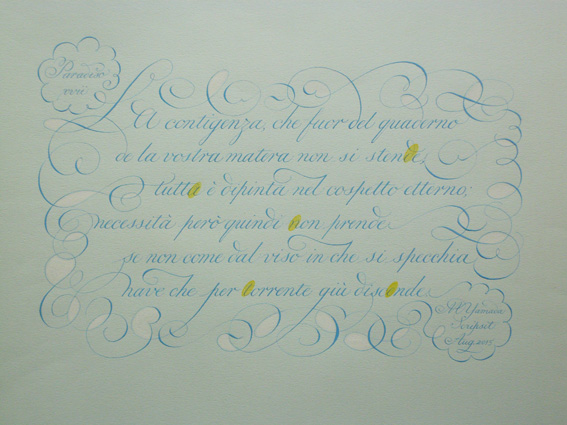 Paradiso
xvii
La contigenza, che fuor del quaderno
de la vostra matera non si stende,
tutta è dipinta nel cospetto etterno;
necessità però quindi non prende
se non come dal viso in che si specchia
nave che per torrente giù discende
Scripsit